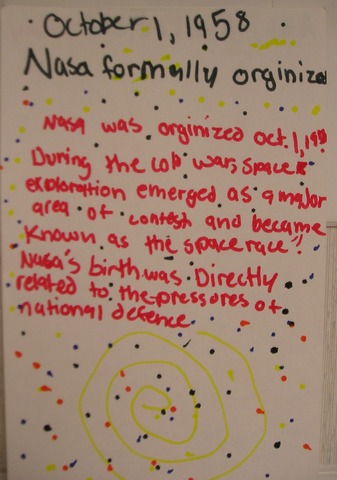 October 1, 1958
Nasa formally orginized
Nasa was orginized oct. 1, 1958
During the cold wars, space
exploration emerged as a major
area of contest and became
known as the space race"!
Nasa's birth was Directly
related to the pressures of
national defence